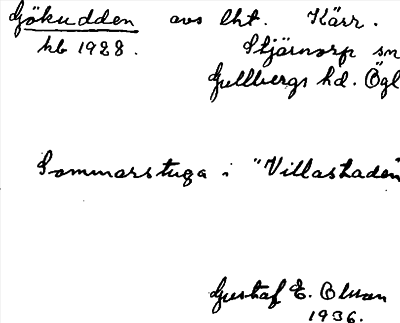 Gökudden avs lht. Kärr.
hb 1928. Stjärnorp sn
Gullbergs hd. Ögl
Sommarstuga i "Villastaden"
Gustaf E. Olsson
1936.